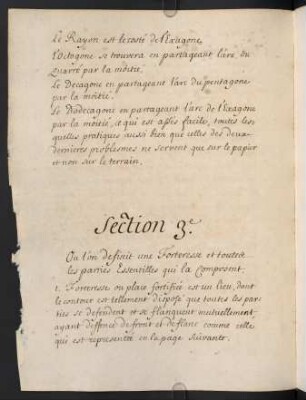 Le Rayon est le costé de l'Exagone
l'octogone se trouvera en partageant l'arc du
quarré par la moitié.
Le Decagone en partageant l'arc du pentagone
par la moitié.
Le Dodecagone en partageant l'arc de l'exagone
par la moitié, ce qui est assés facile, toutes les
quelles pratiques aussi bien que celles des deux
dernieres problesmes ne servent que sur le papier
et non sur le terrain.
Section 3.e
Ou l'on definit une Forteresse et toutes
les parties Essentilles qui la Composent.
1. Forteresse ou place fortifiée est un lieu, dont
le contour est tellement disposé que toutes les par
ties se defendent et se flanquent mutuellement,
ayant deffence de front et de flanc comme celle
qui est representée en la page suivante.